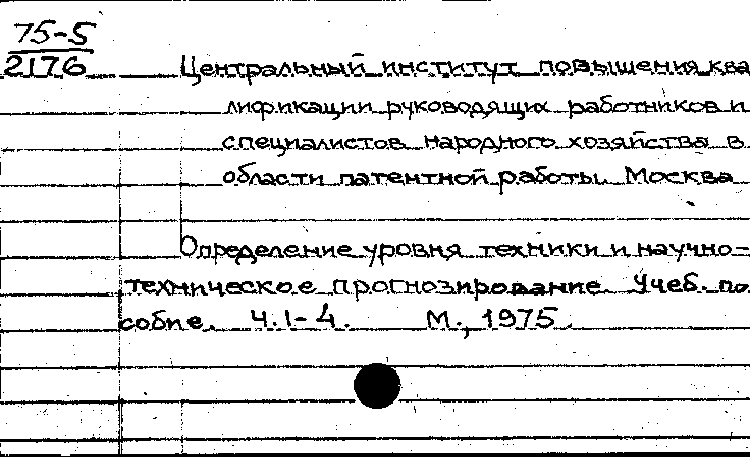 75-5
2176 Центральный институт повышения ква
лификации руководящих работников и
специалистов народного хозяйства в
области патентной работы. Москва
Определение уровня техники и научно-
техническое прогнозирование. Учеб. по
собие. Ч. 1-4. М., 1975.